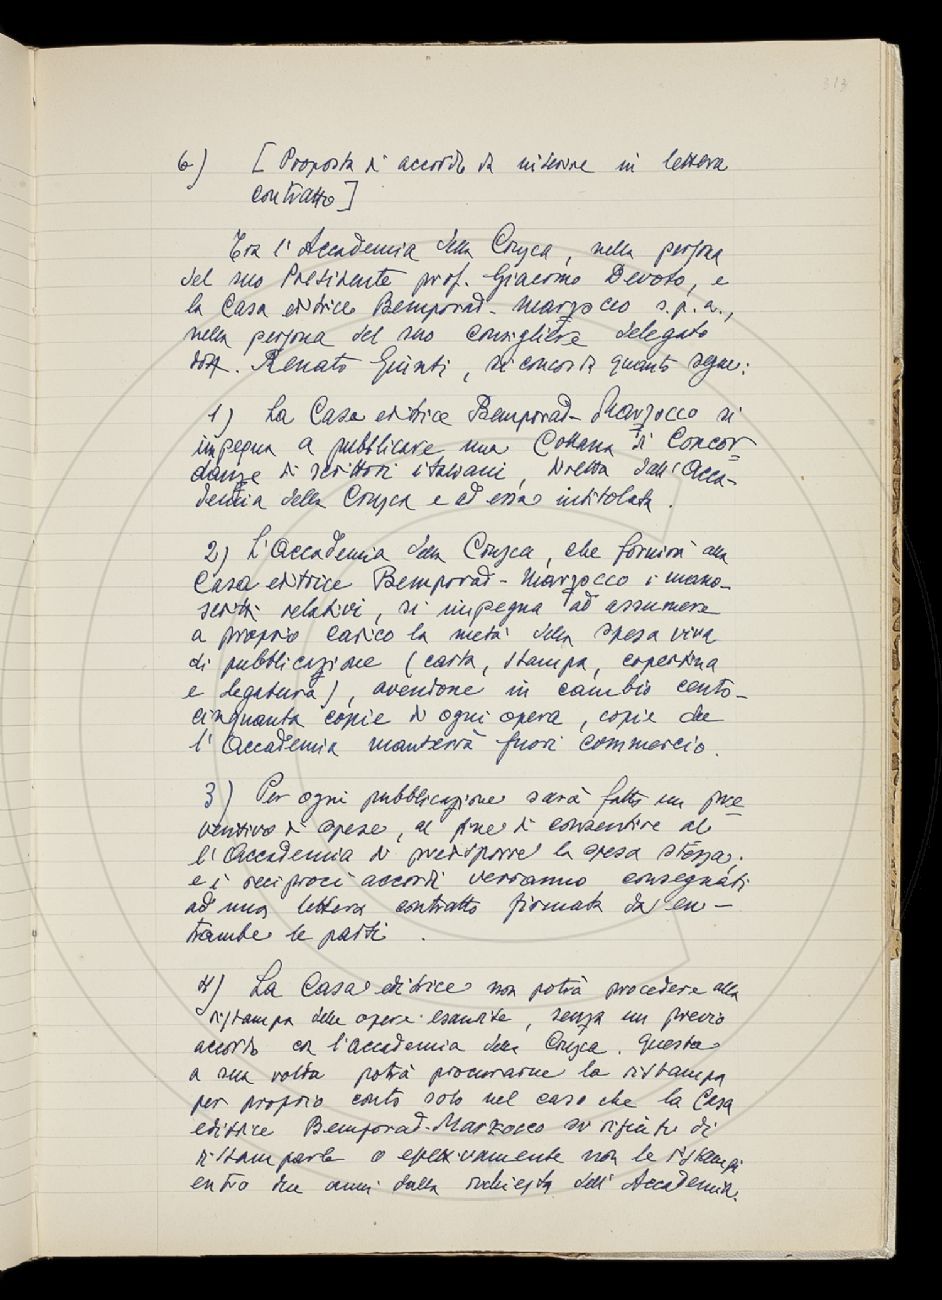 313
6) [Proposta di accordo da inserire in lettera
contratto]
Tra l'Accademia della Crusca, nella persona
del suo Presidente prof. Giacomo Devoto, e
la Casa editrice Bemporad-Marzocco s.p.a.,
nella persona del suo consigliere delegato
dott. Renato Giunti, si concorda quanto segue:
1) La Casa editrice Bemporad-Marzocco si
impegna a pubblicare una Collana di Concor-
danze di scrittori italiani, diretta dall'Acca-
demia della Crusca e ad essa intitolata.
2) L'Accademia della Crusca, che fornirà alla
Casa editrice Bemporad-Marzocco i mano-
scritti relativi, si impegna ad assumere
a proprio carico la metà della spesa viva
di pubblicazione (carta, stampa, copertina
e legatura), avendone in cambio cento-
cinquanta copie di ogni opera, copie che
l'Accademia manterrà fuori commercio.
3) Per ogni pubblicazione sarà fatto un pre-
ventivo di spese, al fine di consentire al-
l'Accademia di predisporre la spesa stessa;
e i reciproci accordi verranno consegnati
ad una lettera contratto firmata da en-
trambe le parti.
4) La Casa editrice non potrà procedere alla
ristampa delle opere esaurite, senza un previo
accordo con l'Accademia della Crusca. Questa
a sua volta potrà procurarne la ristampa
per proprio conto solo nel caso che la Casa
editrice Bemporad-Marzocco si rifiuti di
ristamparle o effettivamente non le ristampi
entro due anni dalla richiesta dell'Accademia.